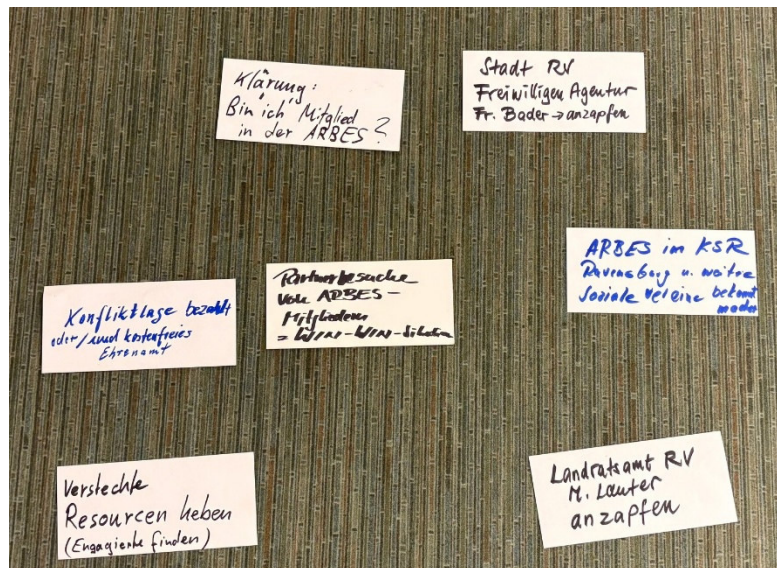 Klärung:
Bin "ich" Mitglied
in der ARBES?
Stadt RV
Freiwilligen Agentur
Fr. Bader → anzapfen
Konfliktlage bezahlt
oder/und kostenfreies
Ehrenamt
Partnerbesuche
von ARBES-
Mitgliedern
= WIN-WIN-Situation
ARBES im KSR
Ravensburg u. weitre
Soziale Vereine bekannt
machen
Versteckte
Resourcen heben
(Engagierte finden)
Landratsamt RV
M. Lauter
anzapfen